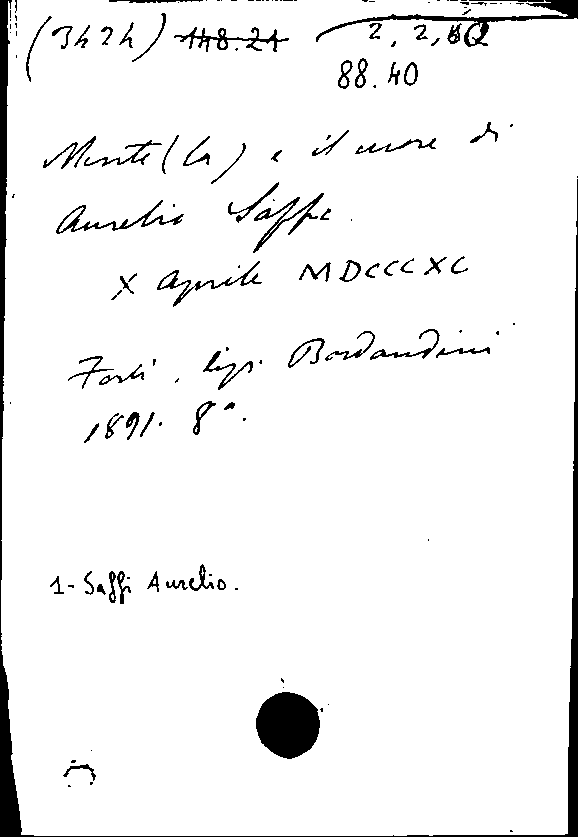 (3424) 148.21 2, 2, 6Q
88.40
Mente (La) e il cuore di
Aurelio Saffi.
X Aprile MDCCCXC
Forlì, tip. Bordandini
1891. 8°.
1- Saffi Aurelio.